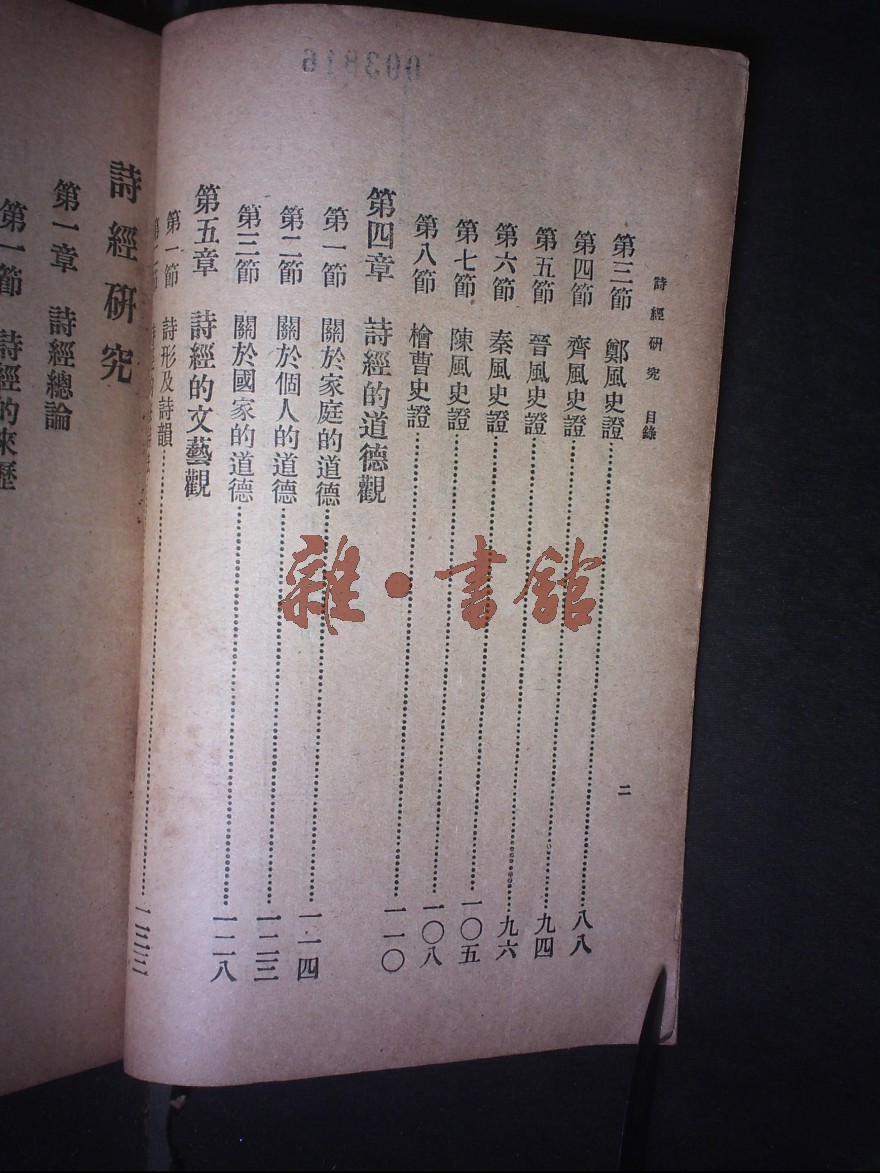 003816
詩經研究 目錄
二
第三節 鄭風史證……八八
第四節 齊風史證……九四
第五節 晉風史證……九六
第六節 秦風史證……一〇五
第七節 陳風史證……一〇八
第八節 檜曹史證……一一〇
第四章 詩經的道德觀
第一節 關於家庭的道德……一一四
第二節 關於個人的道德……一二三
第三節 關於國家的道德……一二八
第五章 詩經的文藝觀
第一節 詩形及詩韻……
詩經研究
第一章 詩經總論
第一節 詩經的來歷
雜·書館